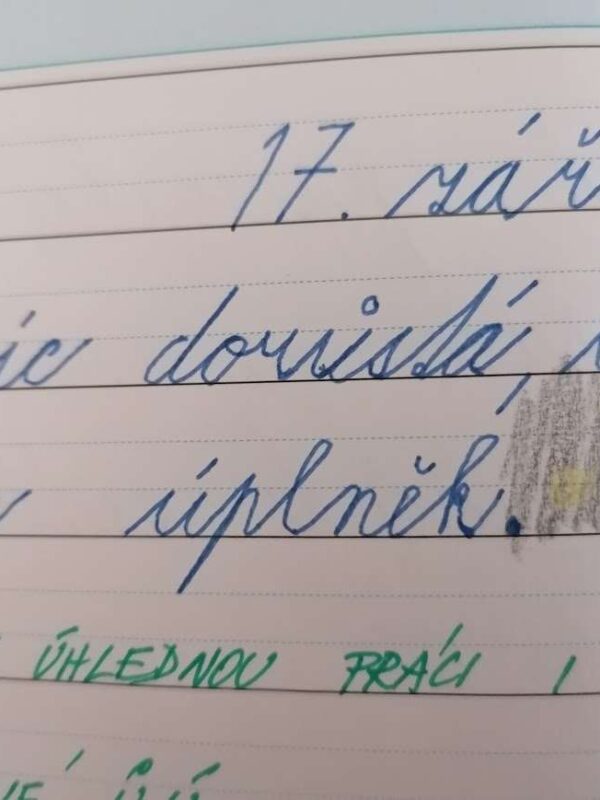 17. zář
íc dorůstá,
úplněk.
ÚHLEDNOU PRÁCI I